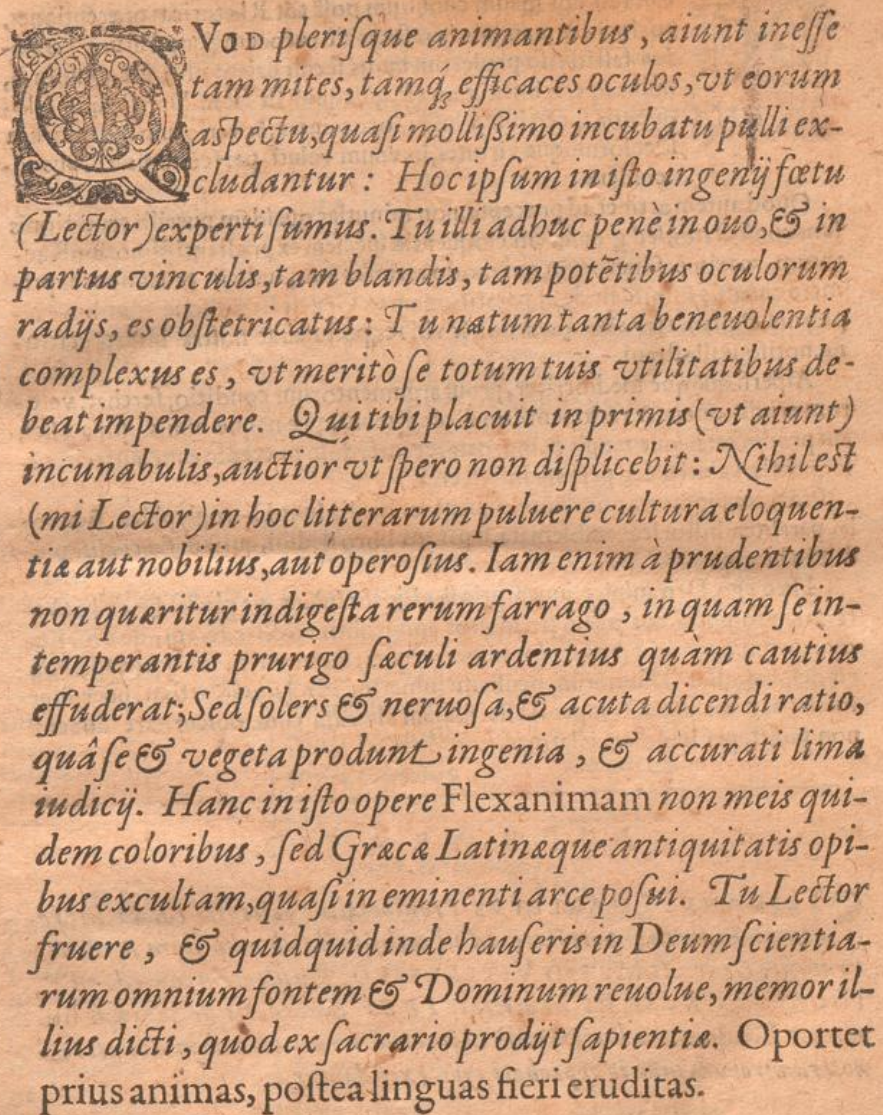 QVOD pleriſque animantibus, aiunt ineſſe
tam mites, tamq́; efficaces oculos, vt eorum
aſpectu, quaſi molliſsimo incubatu pulli ex-
cludantur: Hoc ipſum in iſto ingenij fœtu
(Lector) experti ſumus. Tu illi adhuc penè in ouo, & in
partus vinculis, tam blandis, tam potẽtibus oculorum
radijs, es obſtetricatus: Tu natum tanta beneuolentia
complexus es, vt meritò ſe totum tuis vtilitatibus de-
beat impendere. Qui tibi placuit in primis (vt aiunt)
incunabulis, auctior vt ſpero non diſplicebit: Nihil eſt
(mi Lector) in hoc litterarum puluere cultura eloquen-
tiæ aut nobilius, aut operoſius. Iam enim à prudentibus
non quæritur indigeſta rerum farrago, in quam ſe in-
temperantis prurigo ſæculi ardentius quàm cautius
effuderat; Sed ſolers & neruoſa, & acuta dicendi ratio,
quâ ſe & vegeta produnt ingenia, & accurati lima
iudicij. Hanc in iſto opere Flexanimam non meis qui-
dem coloribus, ſed Græcæ Latinæque antiquitatis opi-
bus excultam, quaſi in eminenti arce poſui. Tu Lector
fruere, & quidquid inde hauſeris in Deum ſcientia-
rum omnium fontem & Dominum reuolue, memor il-
lius dicti, quod ex ſacrario prodijt ſapientiæ. Oportet
prius animas, poſtea linguas fieri eruditas.